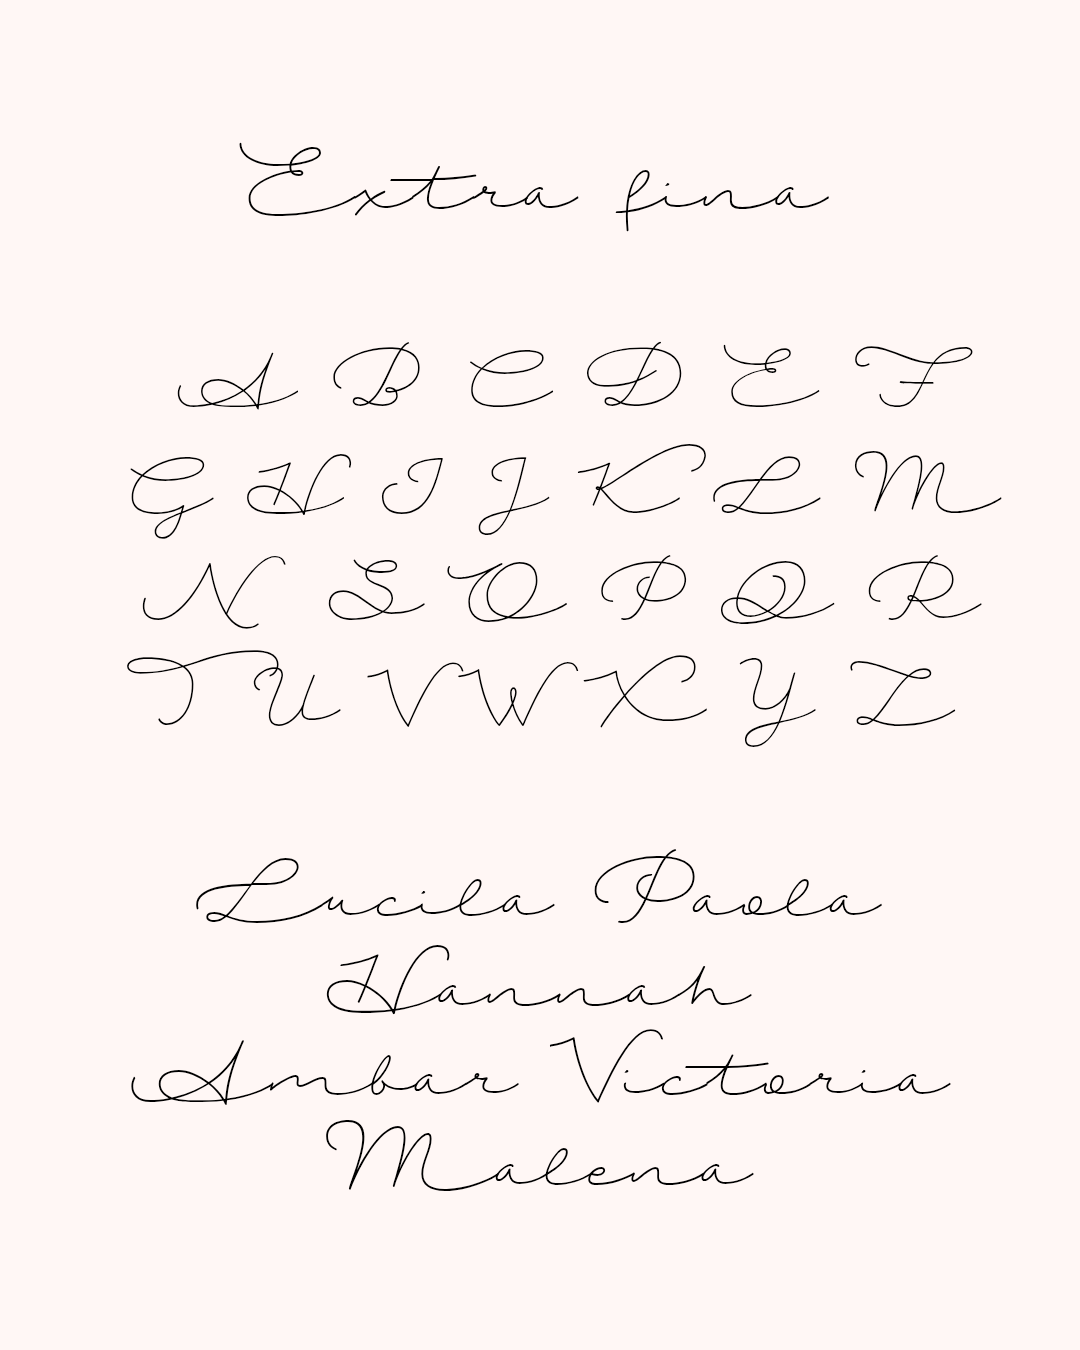 Extra fina
A B C D E F
G H I J K L M
N S O P Q R
T U V W X Y Z
Lucila Paola
Hannah
Ambar Victoria
Malena